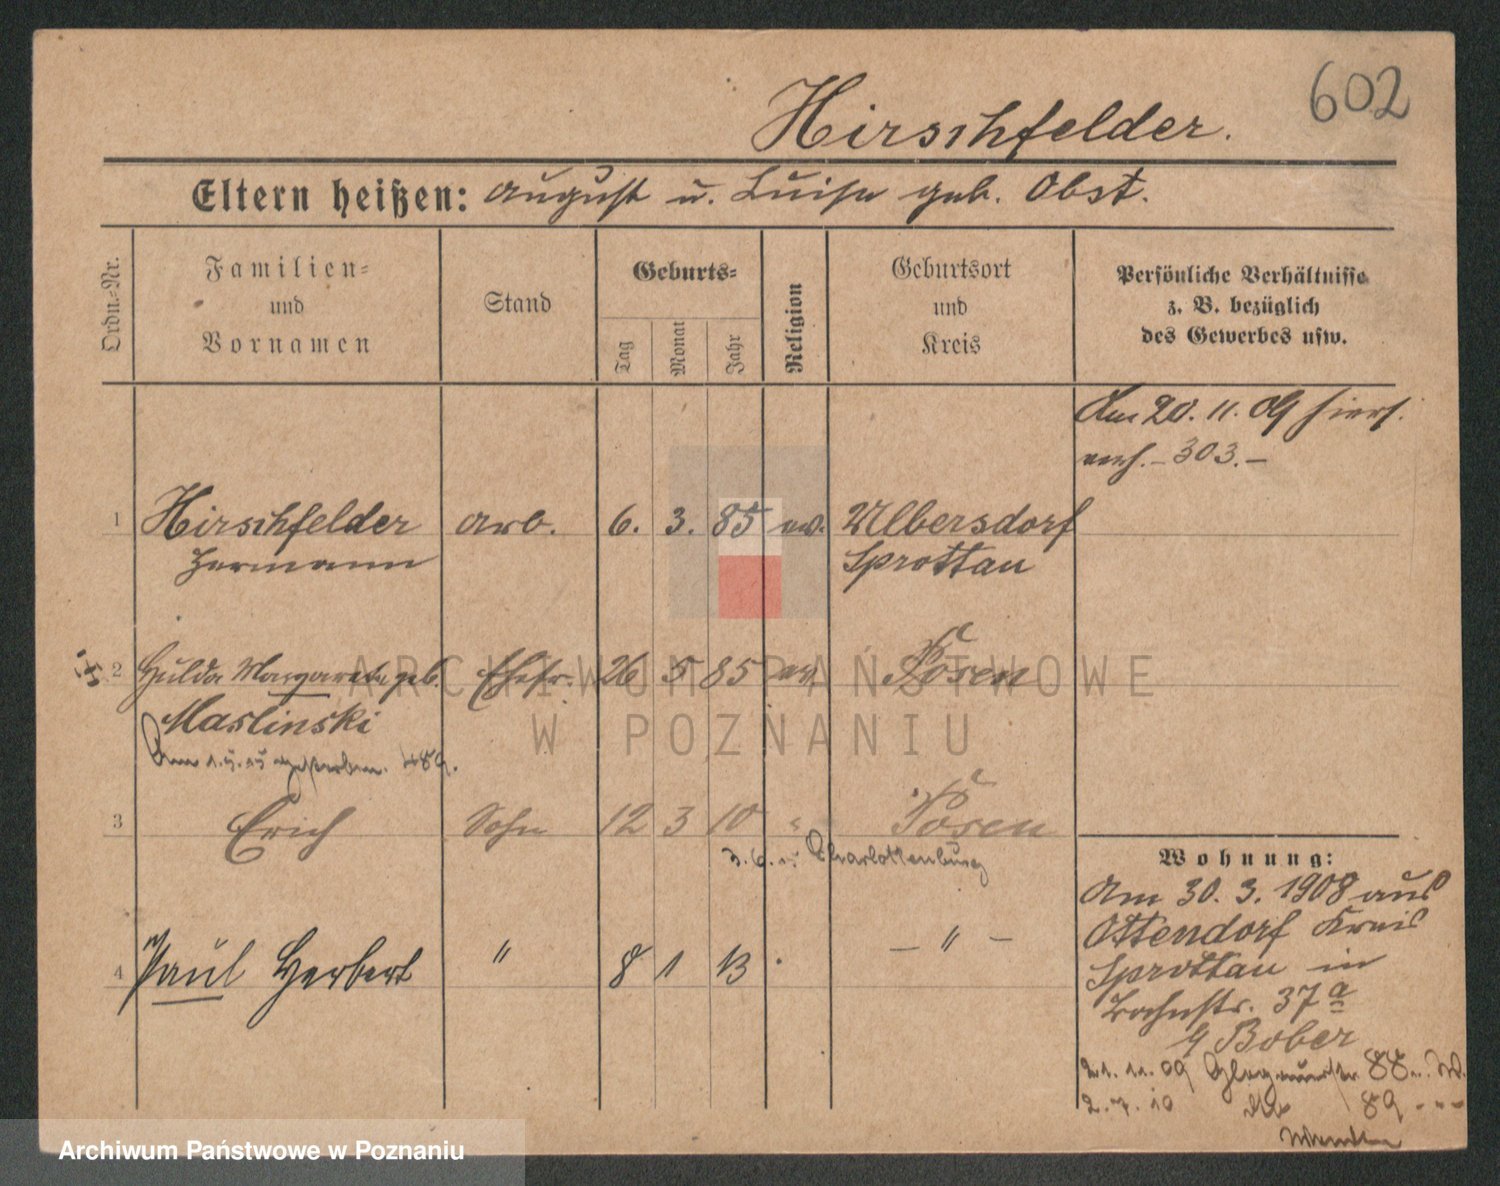 602
Hirschfelder.
Eltern heißen: August u. Luise geb. Obst.
Ordn.-Nr.
Familien-
und
Vornamen
Stand
Geburts-
Tag
Monat
Jahr
Religion
Geburtsort
und
Kreis
Persönliche Verhältnisse
z. B. bezüglich
des Gewerbes usw.
Am 20. 11. 09 hiers.
verh. – 303. –
1 Hirschfelder arb. 6. 3. 85 ev. Ulbersdorf
Hermann Sprottau
2 Hulda Margarete geb. Ehefr. 26 5 85 ev. Posen
Maslinski
Am 1.5.15 gestorben. 489.
3 Erich Sohn 12 3 10 " Posen
3. 6. Charlottenburg
4 Paul Herbert " 8 1 13 – " –
Wohnung:
Am 30. 3. 1908 aus
Ottendorf Kreis
Sprottau in
37 a
b/ Bober
21. 11. 09 Glogauerstr. 88
2. 7. 10 dto 89
ARCHIWUM PAŃSTWOWE
W POZNANIU
Archiwum Państwowe w Poznaniu